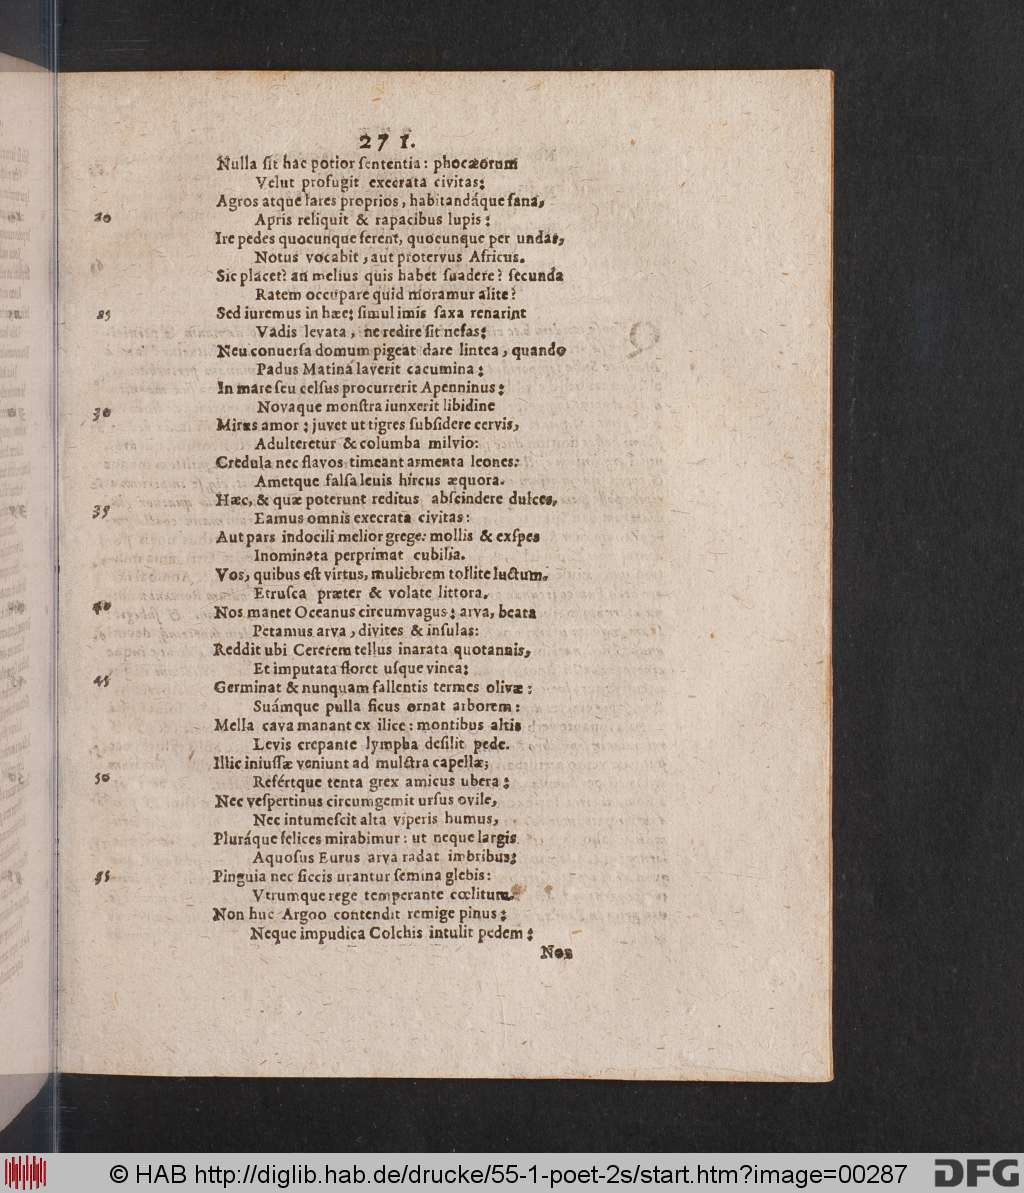 271.
Nulla ſit hac potior ſententia: phocæorum
Velut profugit execrata civitas;
Agros atque lares proprios, habitandáque fana,
20 Apris reliquit & rapacibus lupis:
Ire pedes quocunque ferent, quocunque per undas,
Notus vocabit, aut protervus Africus.
Sic placet? an melius quis habet ſuadere? ſecunda
Ratem occupare quid moramur alite?
25 Sed iuremus in hæc; ſimul imis ſaxa renarint
Vadis levata, ne redire ſit nefas;
Neu conuerſa domum pigeat dare lintea, quando
Padus Matina laverit cacumina;
In mare ſeu celſus procurrerit Apenninus;
30 Novaque monſtra iunxerit libidine
Mirus amor; juvet ut tigres ſubſidere cervis,
Adulteretur & columba milvio:
Credula nec flavos timeant armenta leones:
Ametque falſa leuis hircus æquora.
35 Hæc, & quæ poterunt reditus abſcindere dulces,
Eamus omnis execrata civitas:
Aut pars indocili melior grege: mollis & exſpes
Inominata perprimat cubilia.
Vos, quibus eſt virtus, muliebrem tollite luctum.
Etruſca præter & volate littora.
40 Nos manet Oceanus circumvagus; arva, beata
Petamus arva, divites & inſulas:
Reddit ubi Cererem tellus inarata quotannis,
Et imputata floret uſque vinea;
45 Germinat & nunquam fallentis termes olivæ:
Suámque pulla ficus ornat arborem:
Mella cava manant ex ilice: montibus altis
Levis crepante lympha deſilit pede.
Illic iniuſſæ veniunt ad mulctra capellæ;
50 Refértque tenta grex amicus ubera;
Nec veſpertinus circumgemit urſus ovile,
Nec intumeſcit alta viperis humus,
Pluráque felices mirabimur: ut neque largis
Aquoſus Eurus arva radat imbribus;
55 Pinguia nec ſiccis urantur ſemina glebis:
Vtrumque rege temperante cœlitum.
Non huc Argoo contendit remige pinus;
Neque impudica Colchis intulit pedem;
Non
© HAB http://diglib.hab.de/drucke/55-1-poet-2s/start.htm?image=00287
DFG